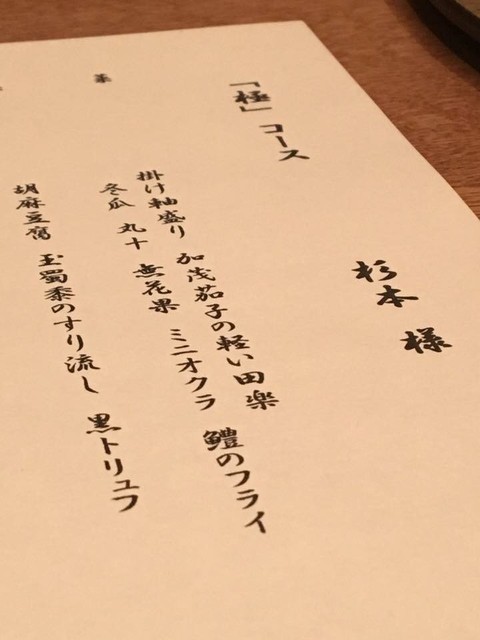 杉本 様
「極」コース
掛け軸盛り 加茂茄子の軽い田楽
冬瓜 丸十 無花果 ミニオクラ 鱧のフライ
胡麻豆腐 玉蜀黍のすり流し 黒トリュフ